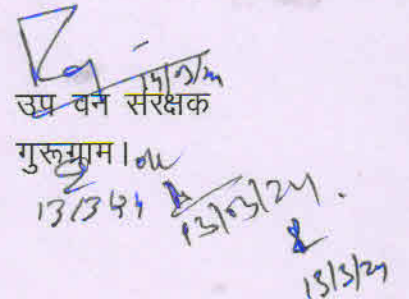 उप वन संरक्षक
गुरूग्राम।
13/3/24 13/03/24.
13/3/24